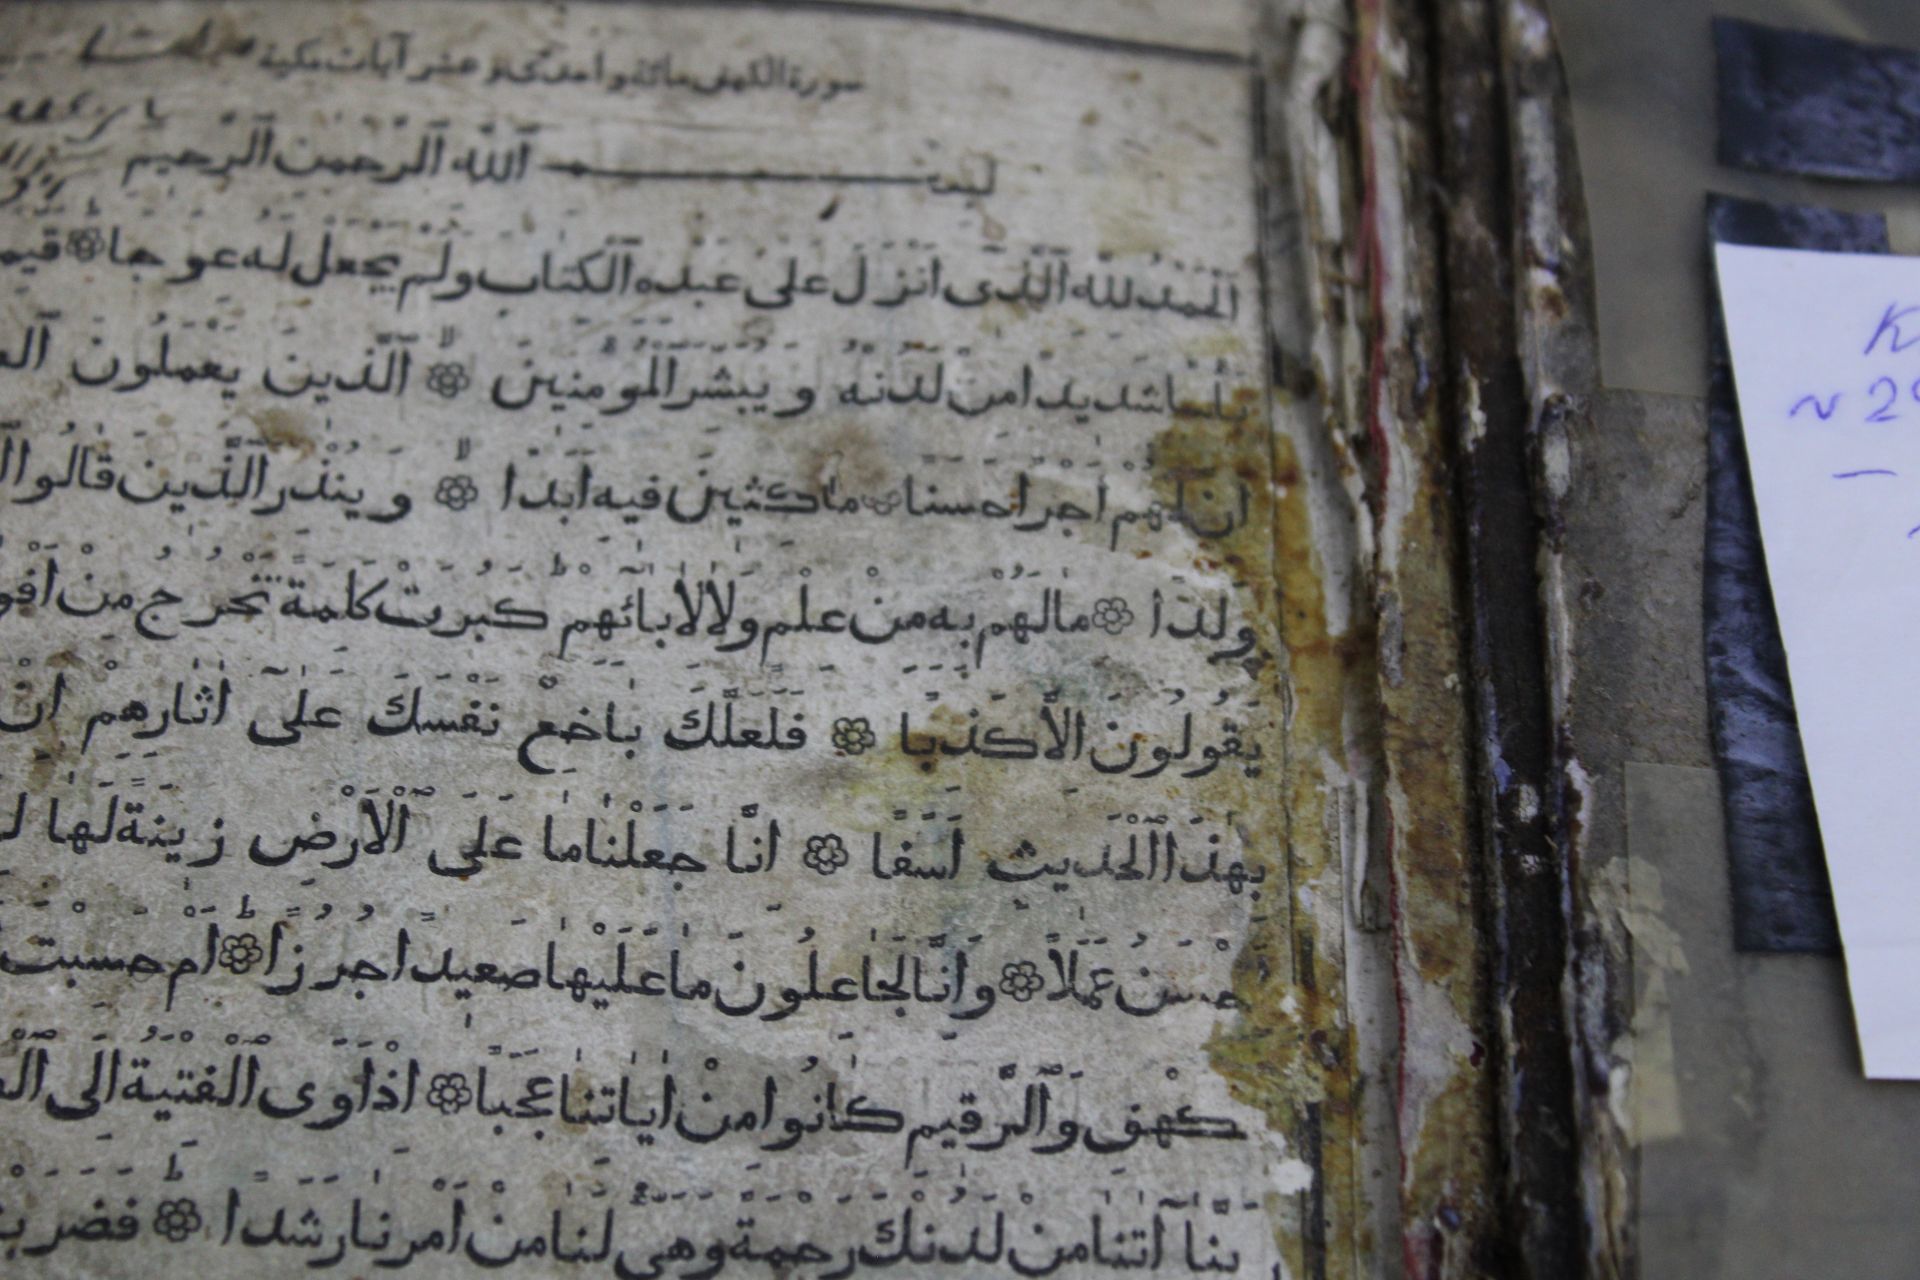 سورة الكهف مائة واحدى وعشر آيات مكية
بسم ٱللّٰه ٱلرحمن ٱلرحيم
الحمد للّٰه ٱلَّذى انزل على عبده ٱلكتاب ولم يجعل له عوجا قيما
بأسا شديدا من لدنه ويبشر المؤمنين ٱلَّذين يعملون
ان لهم اجرا حسنا ماكثين فيه ابدا وينذر الَّذين قالوا
ولدا مالهم به من علم ولا لابائهم كبرت كلمة تخرج من
يقولون الَّا كذبا فلعلَّك باخع نفسك على اثارهم ان
بهذا الحديث اسفا انَّا جعلنا ما على ٱلارض زينة لها
حسن عملا وانَّا لجاعلون ما عليها صعيدا جرزا ام حسبت
كهف وٱلرَّقيم كانوا من اياتنا عجبا اذ اوى ٱلفتية الى
بَّنا آتنا من لدنك رحمة وهيئ لنا من امرنا رشدا
K
~ 2